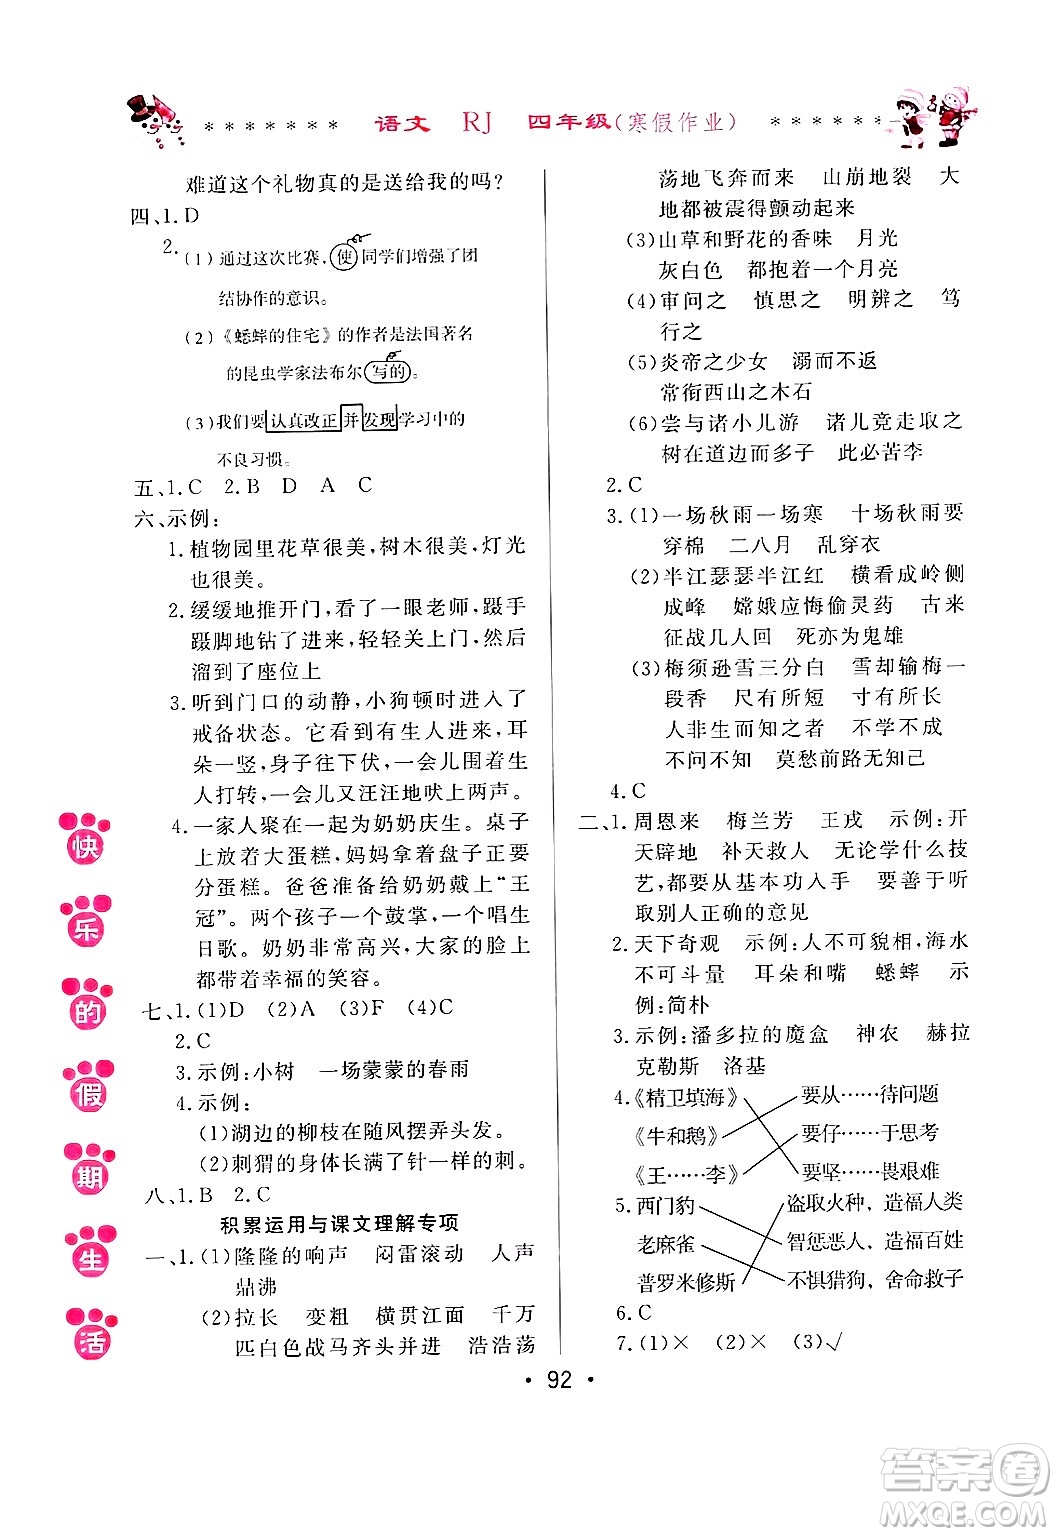 语文 RJ 四年级(寒假作业)
难道这个礼物真的是送给我的吗?
四、1.D
2.(1)通过这次比赛,使同学们增强了团
结协作的意识。
(2)《蟋蟀的住宅》的作者是法国著名
的昆虫学家法布尔写的。
(3)我们要认真改正并发现学习中的
不良习惯。
五、1.C 2.B D A C
六、示例:
1.植物园里花草很美,树木很美,灯光
也很美。
2.缓缓地推开门,看了一眼老师,蹑手
蹑脚地钻了进来,轻轻关上门,然后
溜到了座位上
3.听到门口的动静,小狗顿时进入了
戒备状态。它看到有生人进来,耳
朵一竖,身子往下伏,一会儿围着生
人打转,一会儿又汪汪地吠上两声。
4.一家人聚在一起为奶奶庆生。桌子
上放着大蛋糕,妈妈拿着盘子正要
分蛋糕。爸爸准备给奶奶戴上“王
冠”。两个孩子一个鼓掌,一个唱生
日歌。奶奶非常高兴,大家的脸上
都带着幸福的笑容。
七、1.(1)D (2)A (3)F (4)C
2.C
3.示例:小树 一场蒙蒙的春雨
4.示例:
(1)湖边的柳枝在随风摆弄头发。
(2)刺猬的身体长满了针一样的刺。
八、1.B 2.C
积累运用与课文理解专项
一、1.(1)隆隆的响声 闷雷滚动 人声
鼎沸
(2)拉长 变粗 横贯江面 千万
匹白色战马齐头并进 浩浩荡
荡地飞奔而来 山崩地裂 大
地都被震得颤动起来
(3)山草和野花的香味 月光
灰白色 都抱着一个月亮
(4)审问之 慎思之 明辨之 笃
行之
(5)炎帝之少女 溺而不返
常衔西山之木石
(6)尝与诸小儿游 诸儿竞走取之
树在道边而多子 此必苦李
2.C
3.(1)一场秋雨一场寒 十场秋雨要
穿棉 二八月 乱穿衣
(2)半江瑟瑟半江红 横看成岭侧
成峰 嫦娥应悔偷灵药 古来
征战几人回 死亦为鬼雄
(3)梅须逊雪三分白 雪却输梅一
段香 尺有所短 寸有所长
人非生而知之者 不学不成
不问不知 莫愁前路无知己
4.C
二、1.周恩来 梅兰芳 王戎 示例:开
天辟地 补天救人 无论学什么技
艺,都要从基本功入手 要善于听
取别人正确的意见
2.天下奇观 示例:人不可貌相,海水
不可斗量 耳朵和嘴 蟋蟀 示
例:简朴
3.示例:潘多拉的魔盒 神农 赫拉
克勒斯 洛基
4.《精卫填海》 要从……待问题
《牛和鹅》 要仔……于思考
《王……李》 要坚……畏艰难
5.西门豹 盗取火种,造福人类
老麻雀 智惩恶人,造福百姓
普罗米修斯 不惧猎狗,舍命救子
6.C
7.(1)× (2)× (3)√
快乐的假期生活
·92·
答案圈
MXQE.COM